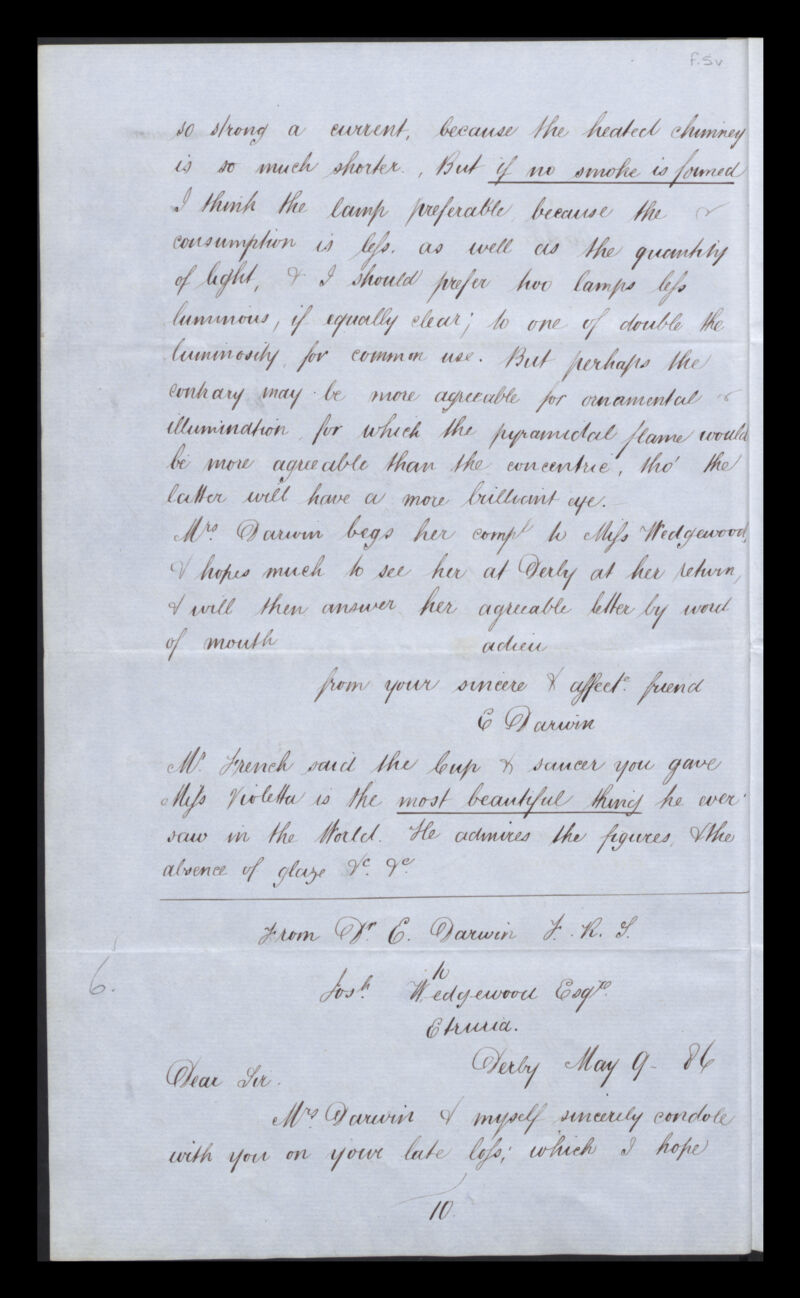 f.5v
so strong a current, because the heated chimney
is so much shorter., But if no smoke is formed
I think the lamp preferable, because the
consumption is leſs. as well as the quantity
of light, & I should prefer two lamps leſs
luminous, if equally clear; to one of double the
luminosity, for common use. But perhaps the
contrary may be more agreeable for ornamental
illumination, for which the pyramidal flame would
be more agreeable than the concentric, tho' the
latter will have a more brilliant eye.—
Mrs. Darwin begs her compt to Miſs Wedgewood,
& hopes much to see her at Derby at her return,
& will then answer her agreeable letter by word
of mouth adieu
from your sincere & affecte. friend
E Darwin
Mr. French said the Cup & saucer you gave
Miſs Violetta is the most beautiful thing he ever
saw in the World. He admires the figures, & the
absence of glaze &c. &c.
From Dr E. Darwin F. R. S.
6. to
Josh. Wedgewood Esqre.
Etruria.
Derby May 9 - 86
Dear Sir.
Mrs Darwin & myself sincerely condole
with you on your late loſs; which I hope
10.